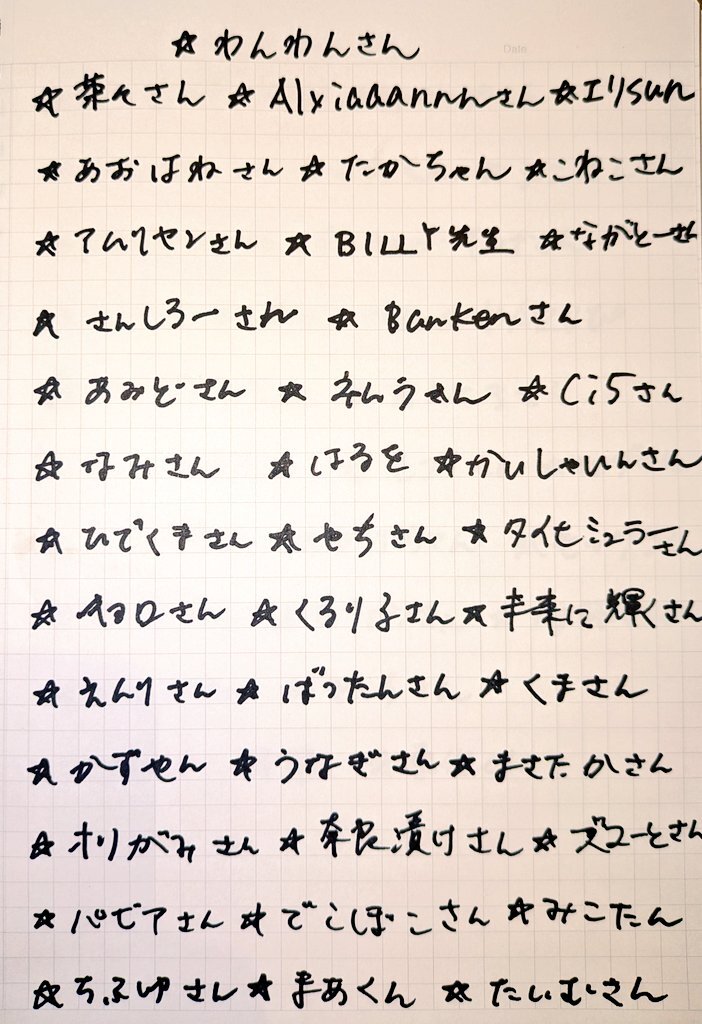 ☆わんわんさん
☆菜々さん ☆Alxiaaannnさん ☆エリsun
☆あおはねさん ☆たかちゃん ☆こねこさん
☆アムリヤンさん ☆BILLY先生 ☆ながとーさん
☆さんしろーさん ☆Bankenさん
☆あみどさん ☆さん ☆Ci5さん
☆なみさん ☆はるを ☆かいしゃいんさん
☆ひでくまさん ☆やちさん ☆タイセミュラーさん
☆キョロさん ☆くろり子さん ☆未来に輝くさん
☆えんりさん ☆ばったんさん ☆くまさん
☆かずやん ☆うなぎさん ☆まさたかさん
☆オリがみさん ☆奈良漬けさん ☆ズコーとさん
☆パピアさん ☆でこぼこさん ☆みこたん
☆ちふゆさん ☆まあくん ☆たいむさん